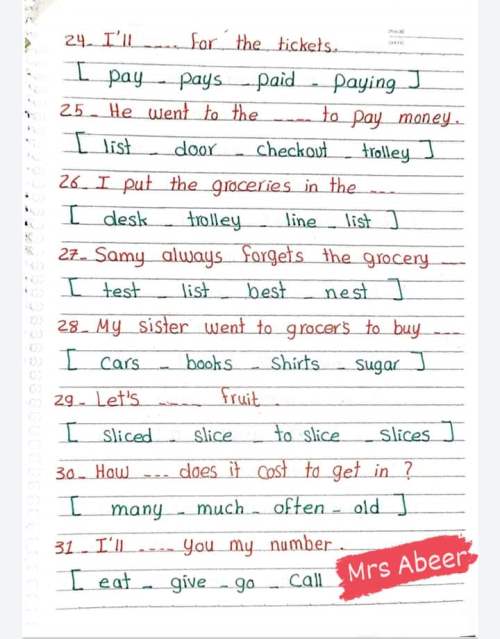 24- I'll ---- for the tickets.
[ pay - pays - paid - paying ]
25- He went to the ---- to pay money.
[ list - door - checkout - trolley ]
26- I put the groceries in the ---
[ desk - trolley - line - list ]
27- Samy always forgets the grocery ---
[ test - list - best - nest ]
28- My sister went to grocer's to buy ---
[ cars - books - shirts - sugar ]
29- Let's ---- fruit.
[ sliced - slice - to slice - slices ]
30- How --- does it cost to get in ?
[ many - much - often - old ]
31- I'll ---- you my number.
[ eat - give - go - call
Mrs Abeer